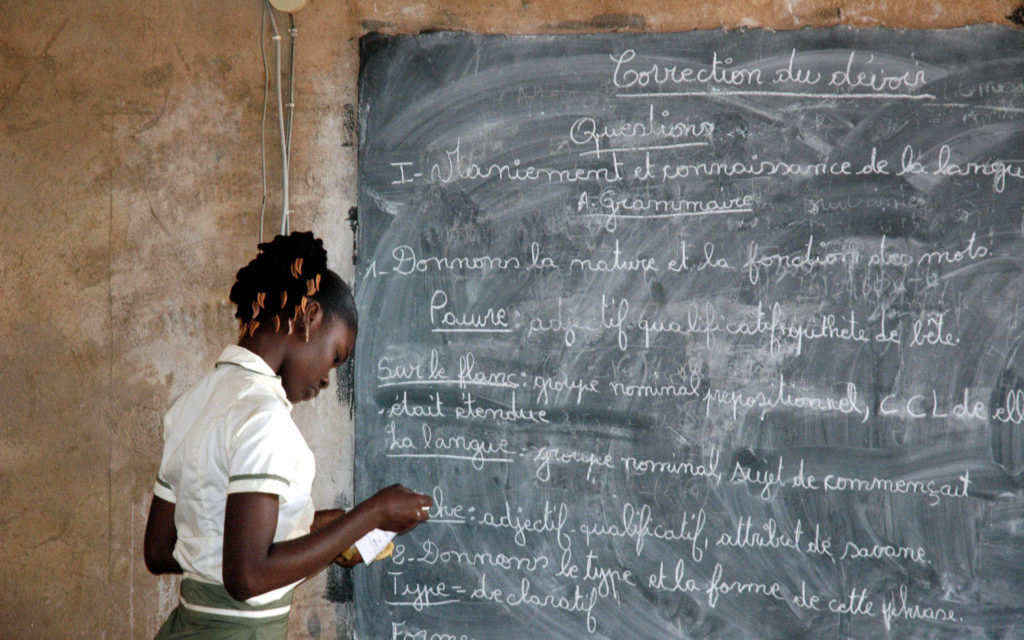 Correction du dévoir
Questions
I- Maniement et connaissance de la langu
A. Grammaire
1- Donnons la nature et la fonction des mots.
Pauvre : adjectif qualificatif, épithète de bête.
Sur le flanc : groupe nominal prépositionnel, C C L de ell
était étendue
La langue : groupe nominal, sujet de commençait
che : adjectif qualificatif, attribut de savane.
2- Donnons le type et la forme de cette phrase.
Type = declaratif
Forme